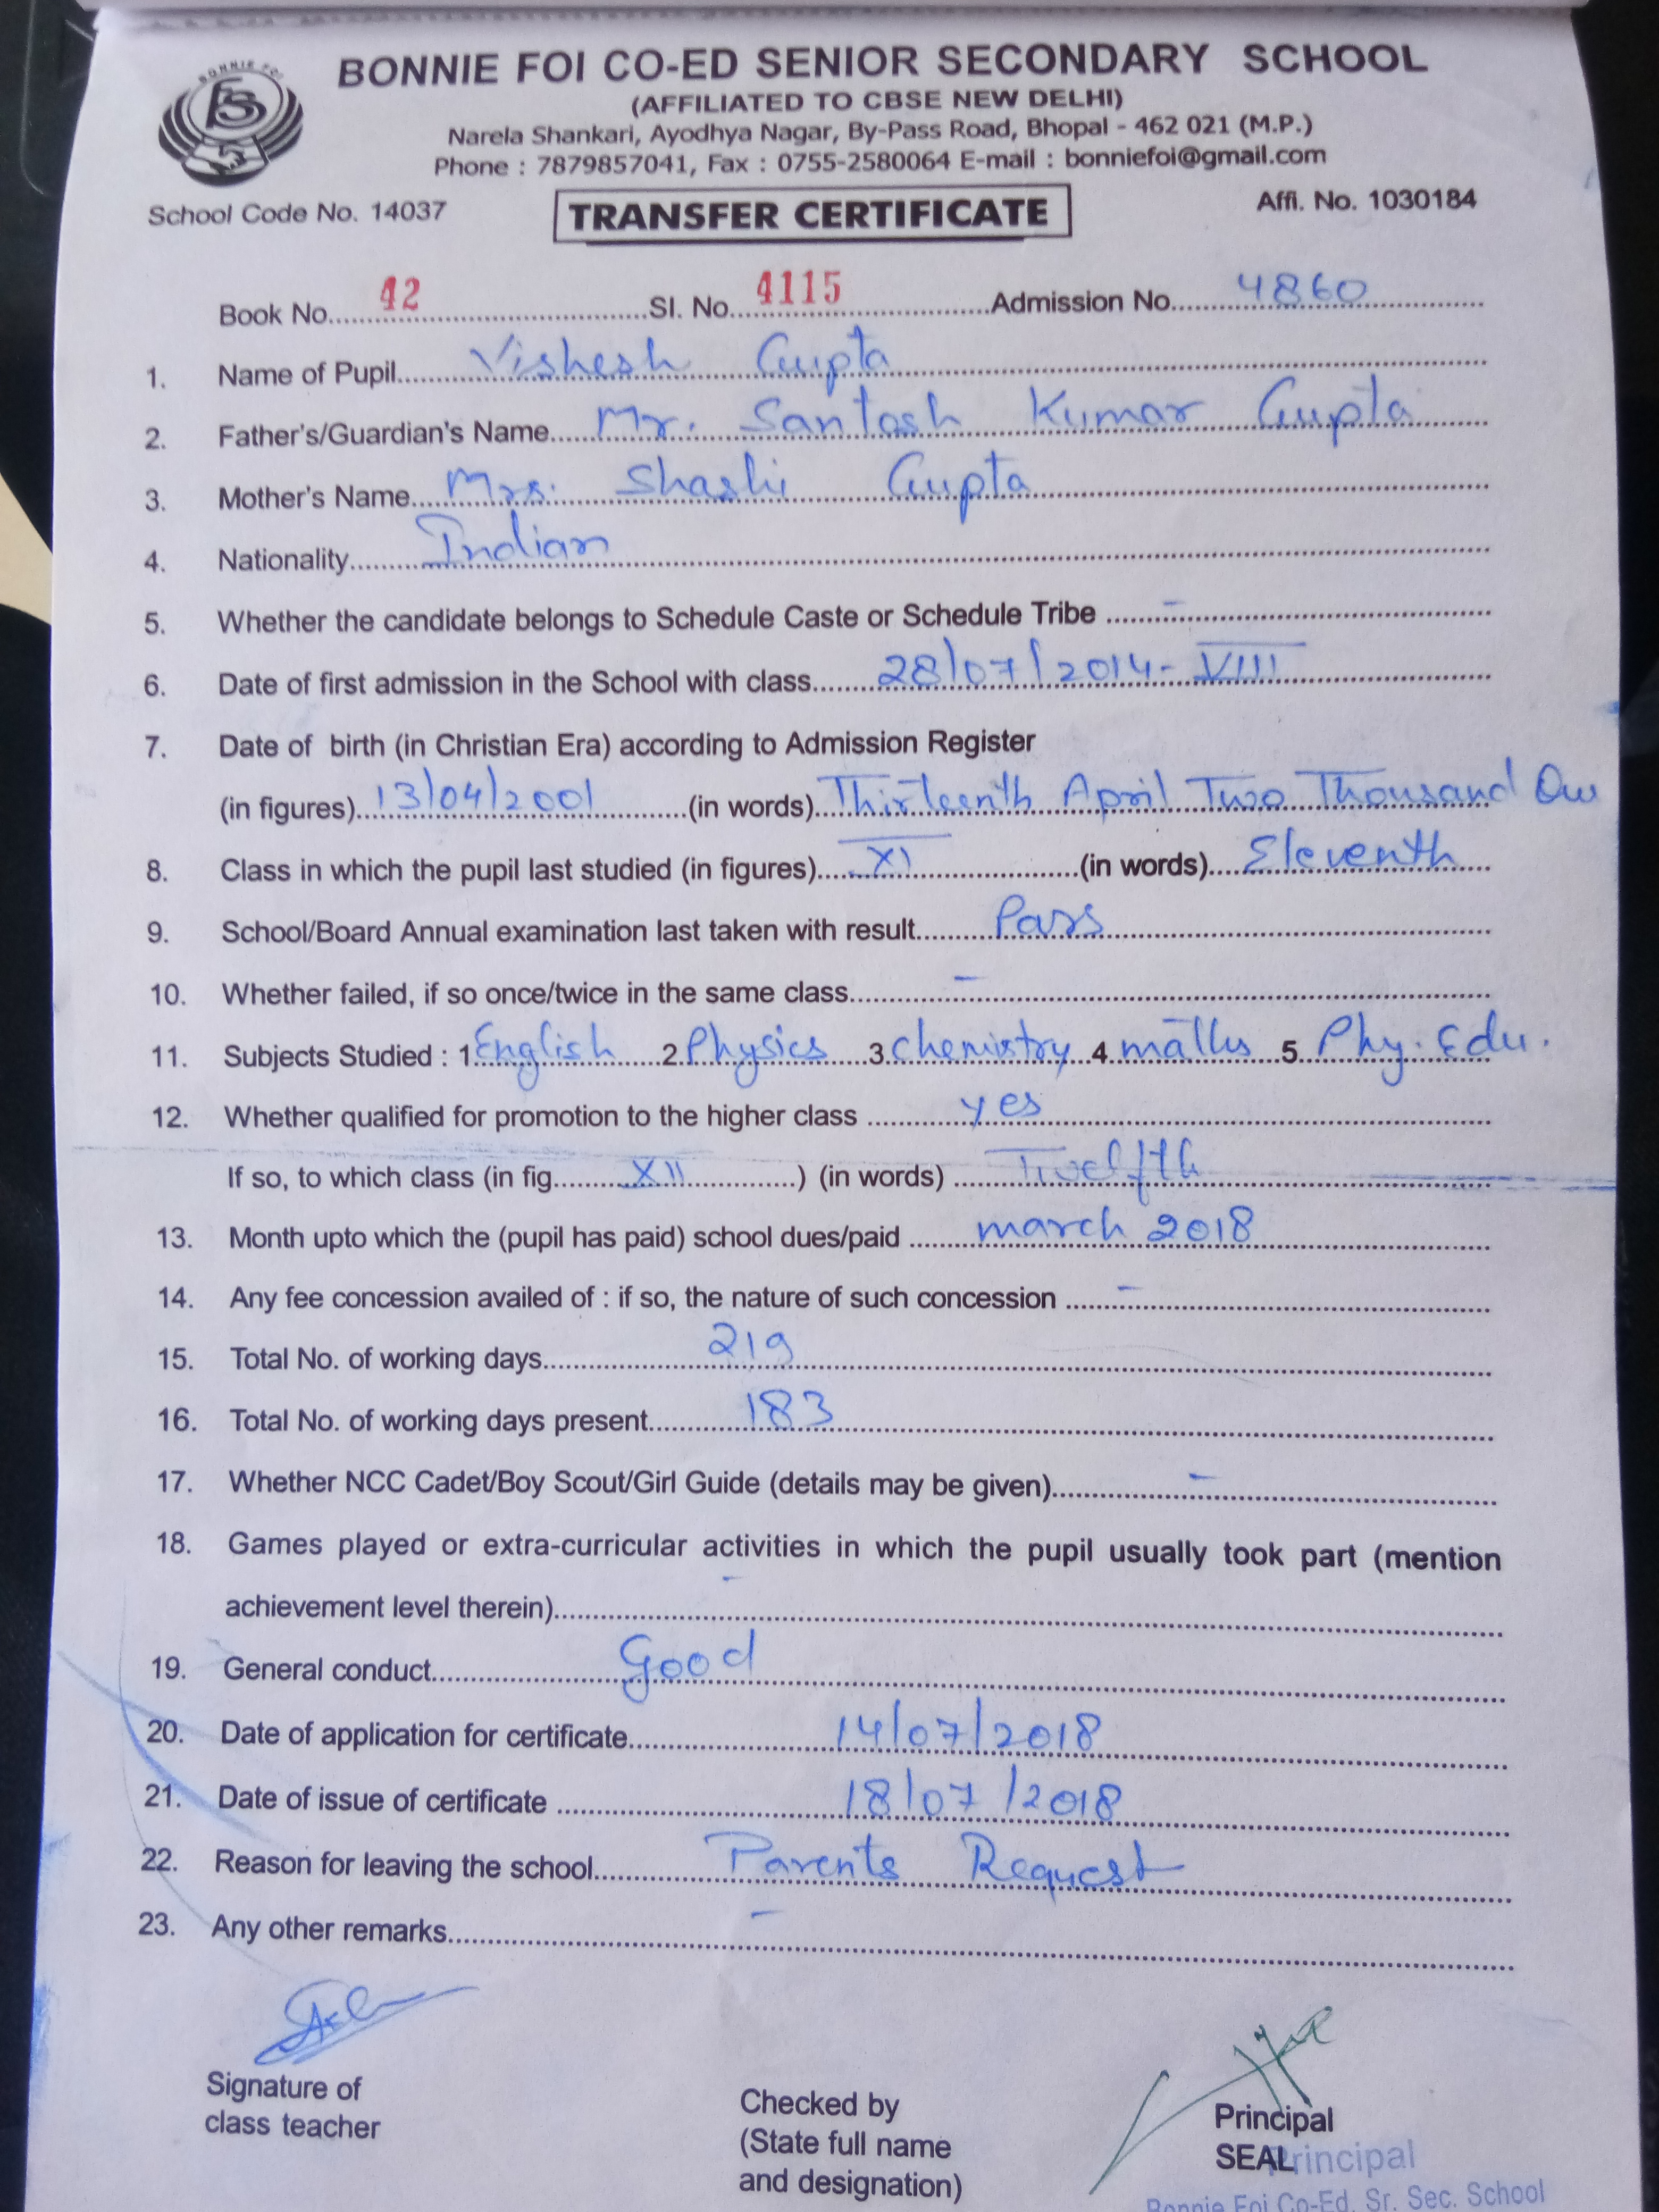 BONNIE FOI
BONNIE FOI CO-ED SENIOR SECONDARY SCHOOL
(AFFILIATED TO CBSE NEW DELHI)
Narela Shankari, Ayodhya Nagar, By-Pass Road, Bhopal - 462 021 (M.P.)
Phone : 7879857041, Fax : 0755-2580064 E-mail : bonniefoi@gmail.com
School Code No. 14037 TRANSFER CERTIFICATE Affi. No. 1030184
Book No. 42 Sl. No. 4115 Admission No. 4860
1. Name of Pupil Vishesh Gupta
2. Father's/Guardian's Name Mr. Santosh Kumar Gupta
3. Mother's Name Mrs. Shashi Gupta
4. Nationality Indian
5. Whether the candidate belongs to Schedule Caste or Schedule Tribe -
6. Date of first admission in the School with class 28/07/2014 - VIII
7. Date of birth (in Christian Era) according to Admission Register
(in figures) 13/04/2001 (in words) Thirteenth April Two Thousand One
8. Class in which the pupil last studied (in figures) XI (in words) Eleventh
9. School/Board Annual examination last taken with result Pass
10. Whether failed, if so once/twice in the same class -
11. Subjects Studied : 1 English 2 Physics 3 chemistry 4 maths 5. Phy. Edu.
12. Whether qualified for promotion to the higher class yes
If so, to which class (in fig. XII ) (in words) Twelfth
13. Month upto which the (pupil has paid) school dues/paid march 2018
14. Any fee concession availed of : if so, the nature of such concession -
15. Total No. of working days 219
16. Total No. of working days present 183
17. Whether NCC Cadet/Boy Scout/Girl Guide (details may be given) -
18. Games played or extra-curricular activities in which the pupil usually took part (mention
achievement level therein) -
19. General conduct Good
20. Date of application for certificate 14/07/2018
21. Date of issue of certificate 18/07/2018
22. Reason for leaving the school Parents Request
23. Any other remarks -
Signature of
class teacher
Checked by
(State full name
and designation)
Principal
SEAL Principal
Bonnie Foi Co-Ed. Sr. Sec. School